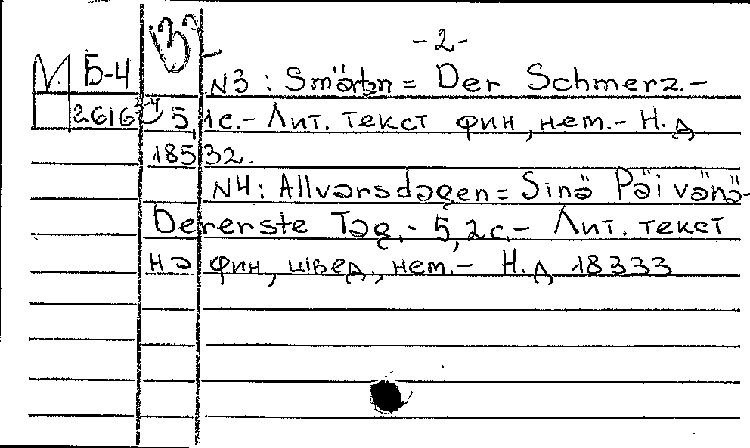 -2-
М Б-4
N3 : Smärtan = Der Schmerz.-
2616 5,1с.- Лит. текст фин, нем.- Н.д
18532.
N4: Allvarsdagen = Sinä Päivänä-
Dererste Tag.- 5,2с.- Лит. текст
на фин, швед., нем.- Н.д 18333